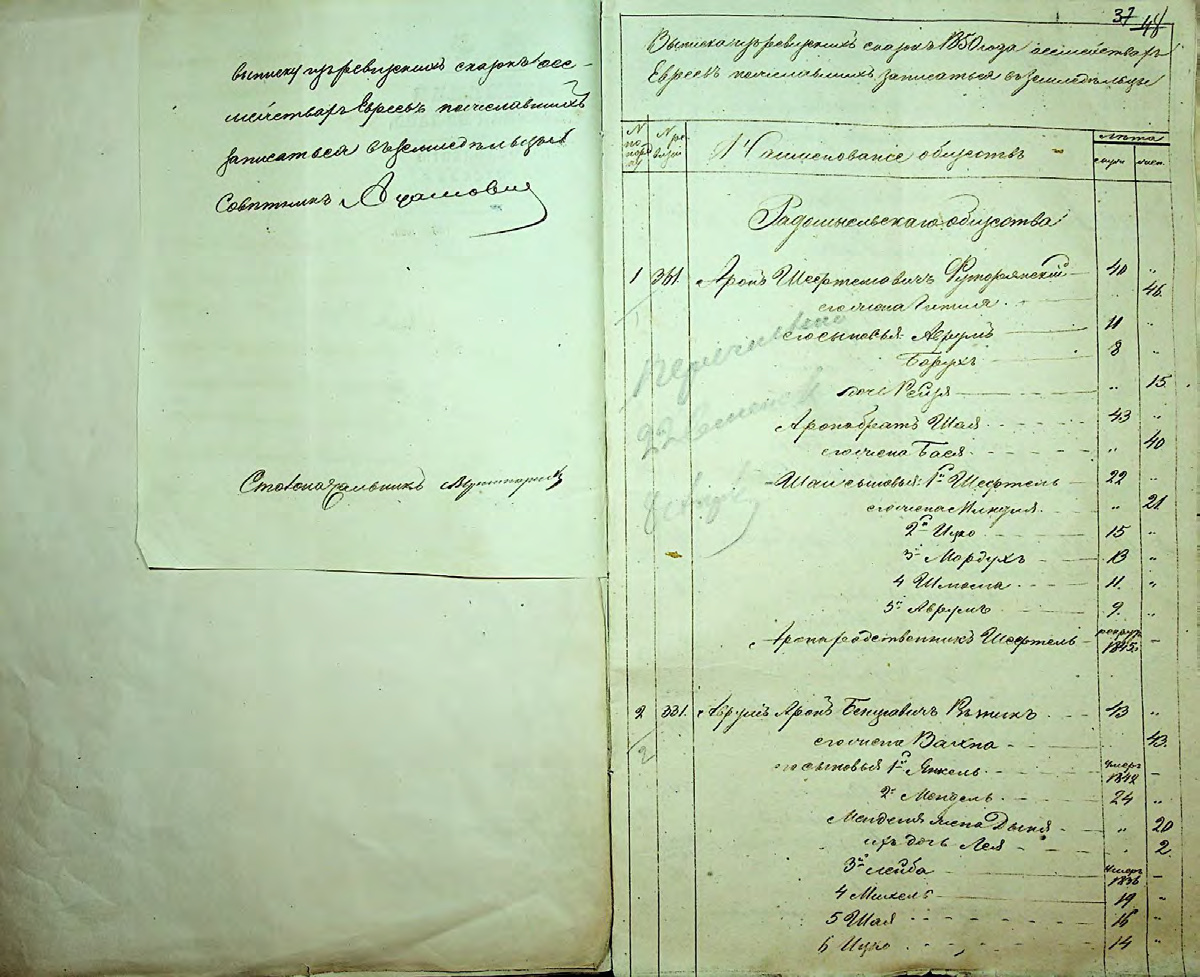 выписку изъ ревизскихъ сказокъ о се-
мействахъ Евреевъ пожелавшихъ
записаться въ земледѣльцы
Совѣтникъ
Столоначальникъ
37 44
Выписка изъ ревизскихъ сказокъ 1850 года о семействахъ
Евреевъ пожелавшихъ записаться въ земледѣльцы
№ по поряд № ревизіи Наименованіе обществъ лѣта
муж женс.
Радомысльскаго общества
1 361. Аронъ Шефтелевичъ Футорянскій 40 „
его жена Гитля „ 46.
его сыновья Аврумъ 11 „
Борухъ 8 „
дочь Рейзя „ 15.
Арона братъ Шая 43 „
его жена Бася „ 40
Шаи сыновья 1й Шефтель 22 „
его жена „ 21.
2й Ицко 15 „
3й Мордухъ 13 „
4 Шлома 11. „
5й Аврумъ 9. „
Арона родственникъ Шефтель рекрут 1845г. –
Перечислены
22
2 331. Аврумъ Аронъ Бенціовичъ 43 „
его жена Вахна 43.
его сыновья 1й Янкель умеръ 1842 –
2й Мендель 24 „
Менделя жена Дыня „ 20
ихъ дочь Лея „ 2.
3й Лейба умеръ 1836 –
4 Михель 19 „
5 Шая 16 „
6 Ицко 14 „
1
2